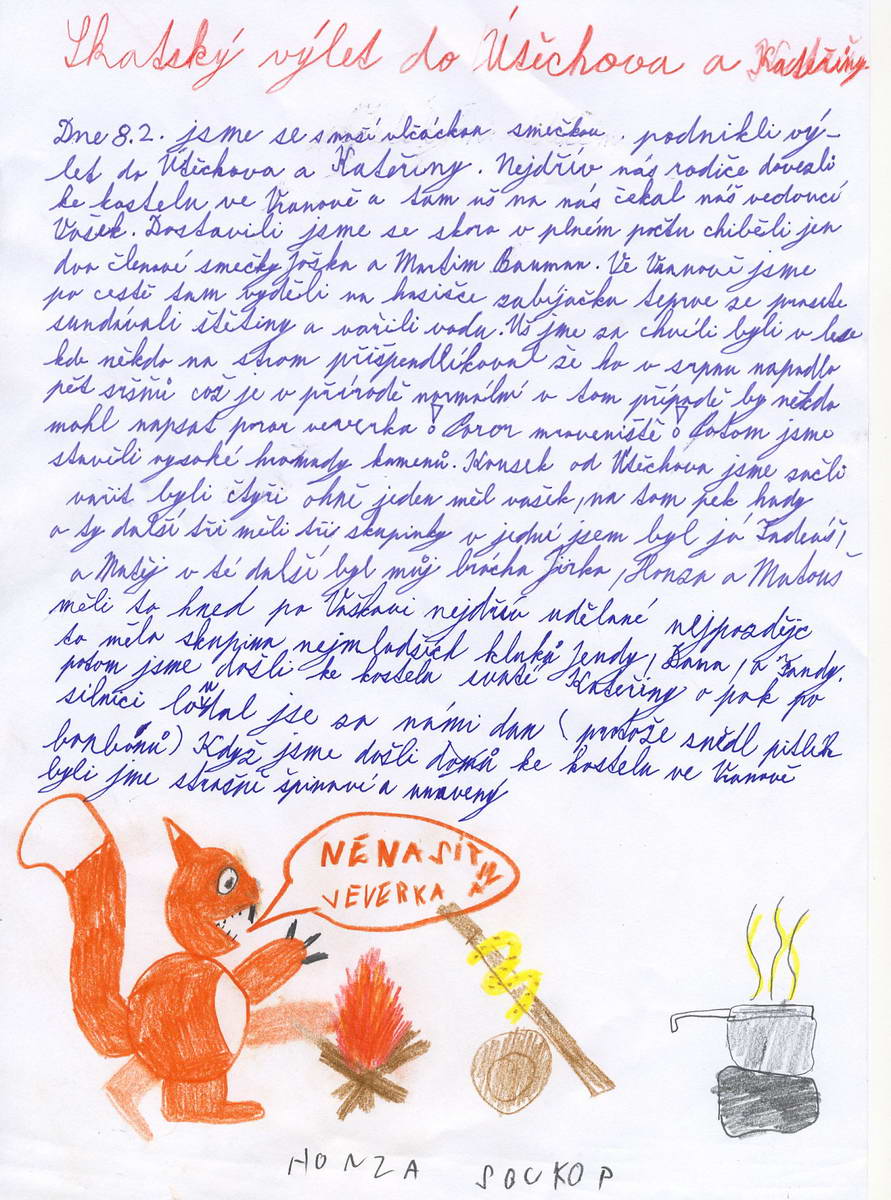 Skatský výlet do Útěchova a Kateřiny
Dne 8.2. jsme se s naší vlčáckou smečkou podnikli vý-
let do Útěchova a Kateřiny. Nejdřív nás rodiče dovezli
ke kostelu ve Vranově a tam uš na nás čekal náš vedoucí
Vašek. Dostavili jsme se skoro v plném počtu chiběli jen
dva členové smečky Joška a Martim Bauman. Ve Vranově jsme
po cestě tam vyděli na hasišče zabíjačku teprve ze prasete
sundávali štětiny a vařili vodu. Uš jme za chvíli byli v lese
kde někdo na strom přišpendlíkoval še ho v srpnu napadlo
pět sršňů což je v přírodě normální v tom případě by někdo
mohl napsat poror veverka! Poror mraveniště! Potom jsme
stavěli vysoké hromady kamenů. Kousek od Útěchova jsme začli
vařit byli čtyři ohně jeden měl vašek, na tom pek hady
a ty další tři měli tři skupinky v jedné jsem byl já Tadeáš,
a Matěj v té další byl můj brácha Jirka, Honza a Matouš
měli to hned po Vaškovi nejdřív udělané nejpozdějc
to měla skupina nejmladších kluků Jendy, Dana, a Fandy.
potom jsme došli ke kostelu svaté Kateřiny a pak po
silnici loudal jse za námi dan (protože snědl pitlík
bonbónů) Když jsme došli domů ke kostelu ve Vranově
byli jme strašně špinaví a unavený
NĚNASÍTNÁ
VEVERKA
HONZA SOUKOP